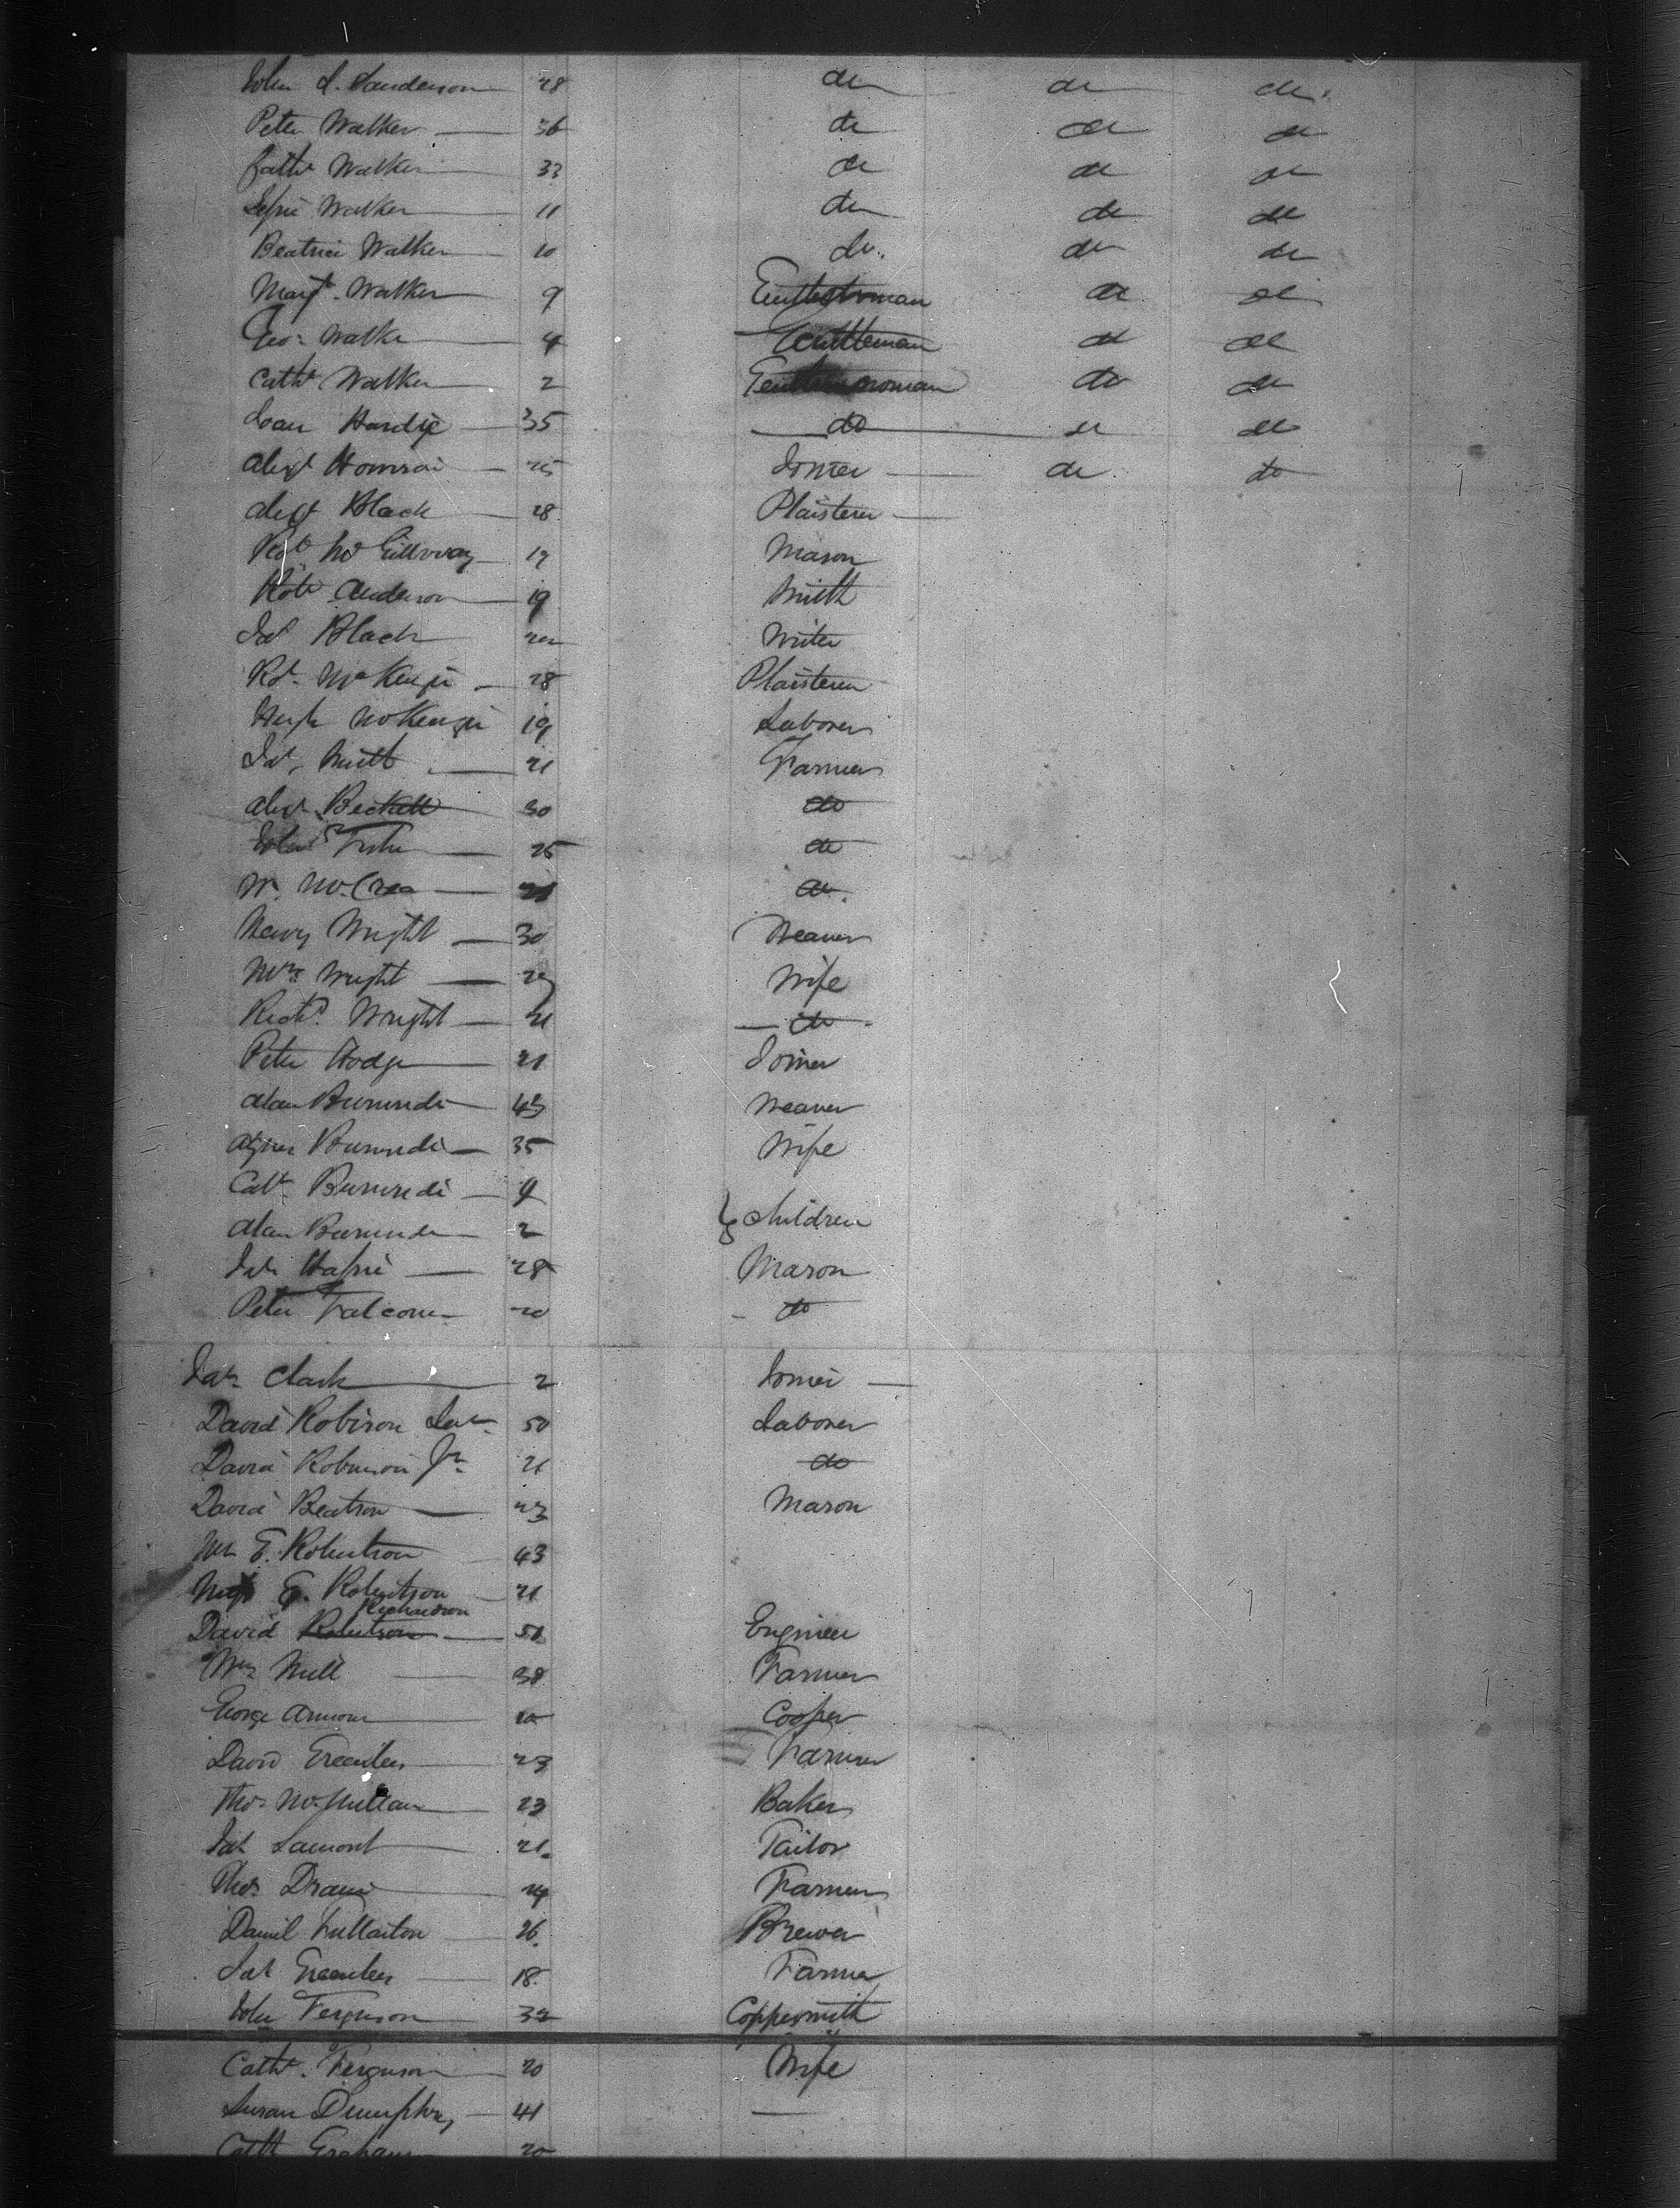 John S. Sanderson 28 do do do
Peter Walker 36 do do do
Cathe Walker 33 do do do
Walker 11 do do do
Beatrice Walker 10 do do do
Margt. Walker 9 Gentlewoman do do
Geo: Walker 4 Gentleman do do
Cathe Walker 2 Gentlewoman do do
Joan Hardie 35 do do do
Alexr 25 Joiner do do
Alexr Black 28 Plaisterer
Robt Mc Gillvray 19 Mason
Robt Anderson 19 Smith
Jas Black 22 Writer
Rd. McKenzie 28 Plaisterer
Hugh McKenzie 19 Laborer
Jas. Smith 21 Farmer
Alexr Beckett 30 do
John Fisher 25 do
W. McCrea 21 do
Henry Wright 30 Weaver
Mrs Wright 29 Wife
Richd. Wright 21 do
Peter Hodge 21 Joiner
Alan 43 Weaver
Agnes 35 Wife
Cath 9
Alan 2 children
Jas 28 Mason
Peter Falconer 20 do
Jas Clark 2 Joiner
David Robison Senr 50 Laborer
David Robinson Jr. 21 do
David Beatson 23 Mason
Mr E. Robertson 43
E. Robertson 21
Richardson
David Robertson 51 Engineer
Wm Mill 38 Farmer
George Armour 20 Cooper
David Greenlees 23 Farmer
Thos McMillan 23 Baker
Jas Lamont 21 Tailor
Thos 24 Farmer
Daniel Fullarton 26 Brewer
Jas Greenlees 18 Farmer
John Ferguson 32 Coppersmith
Cathe. Ferguson 20 Wife
Susan Dumphry 41
Cath Graham 20